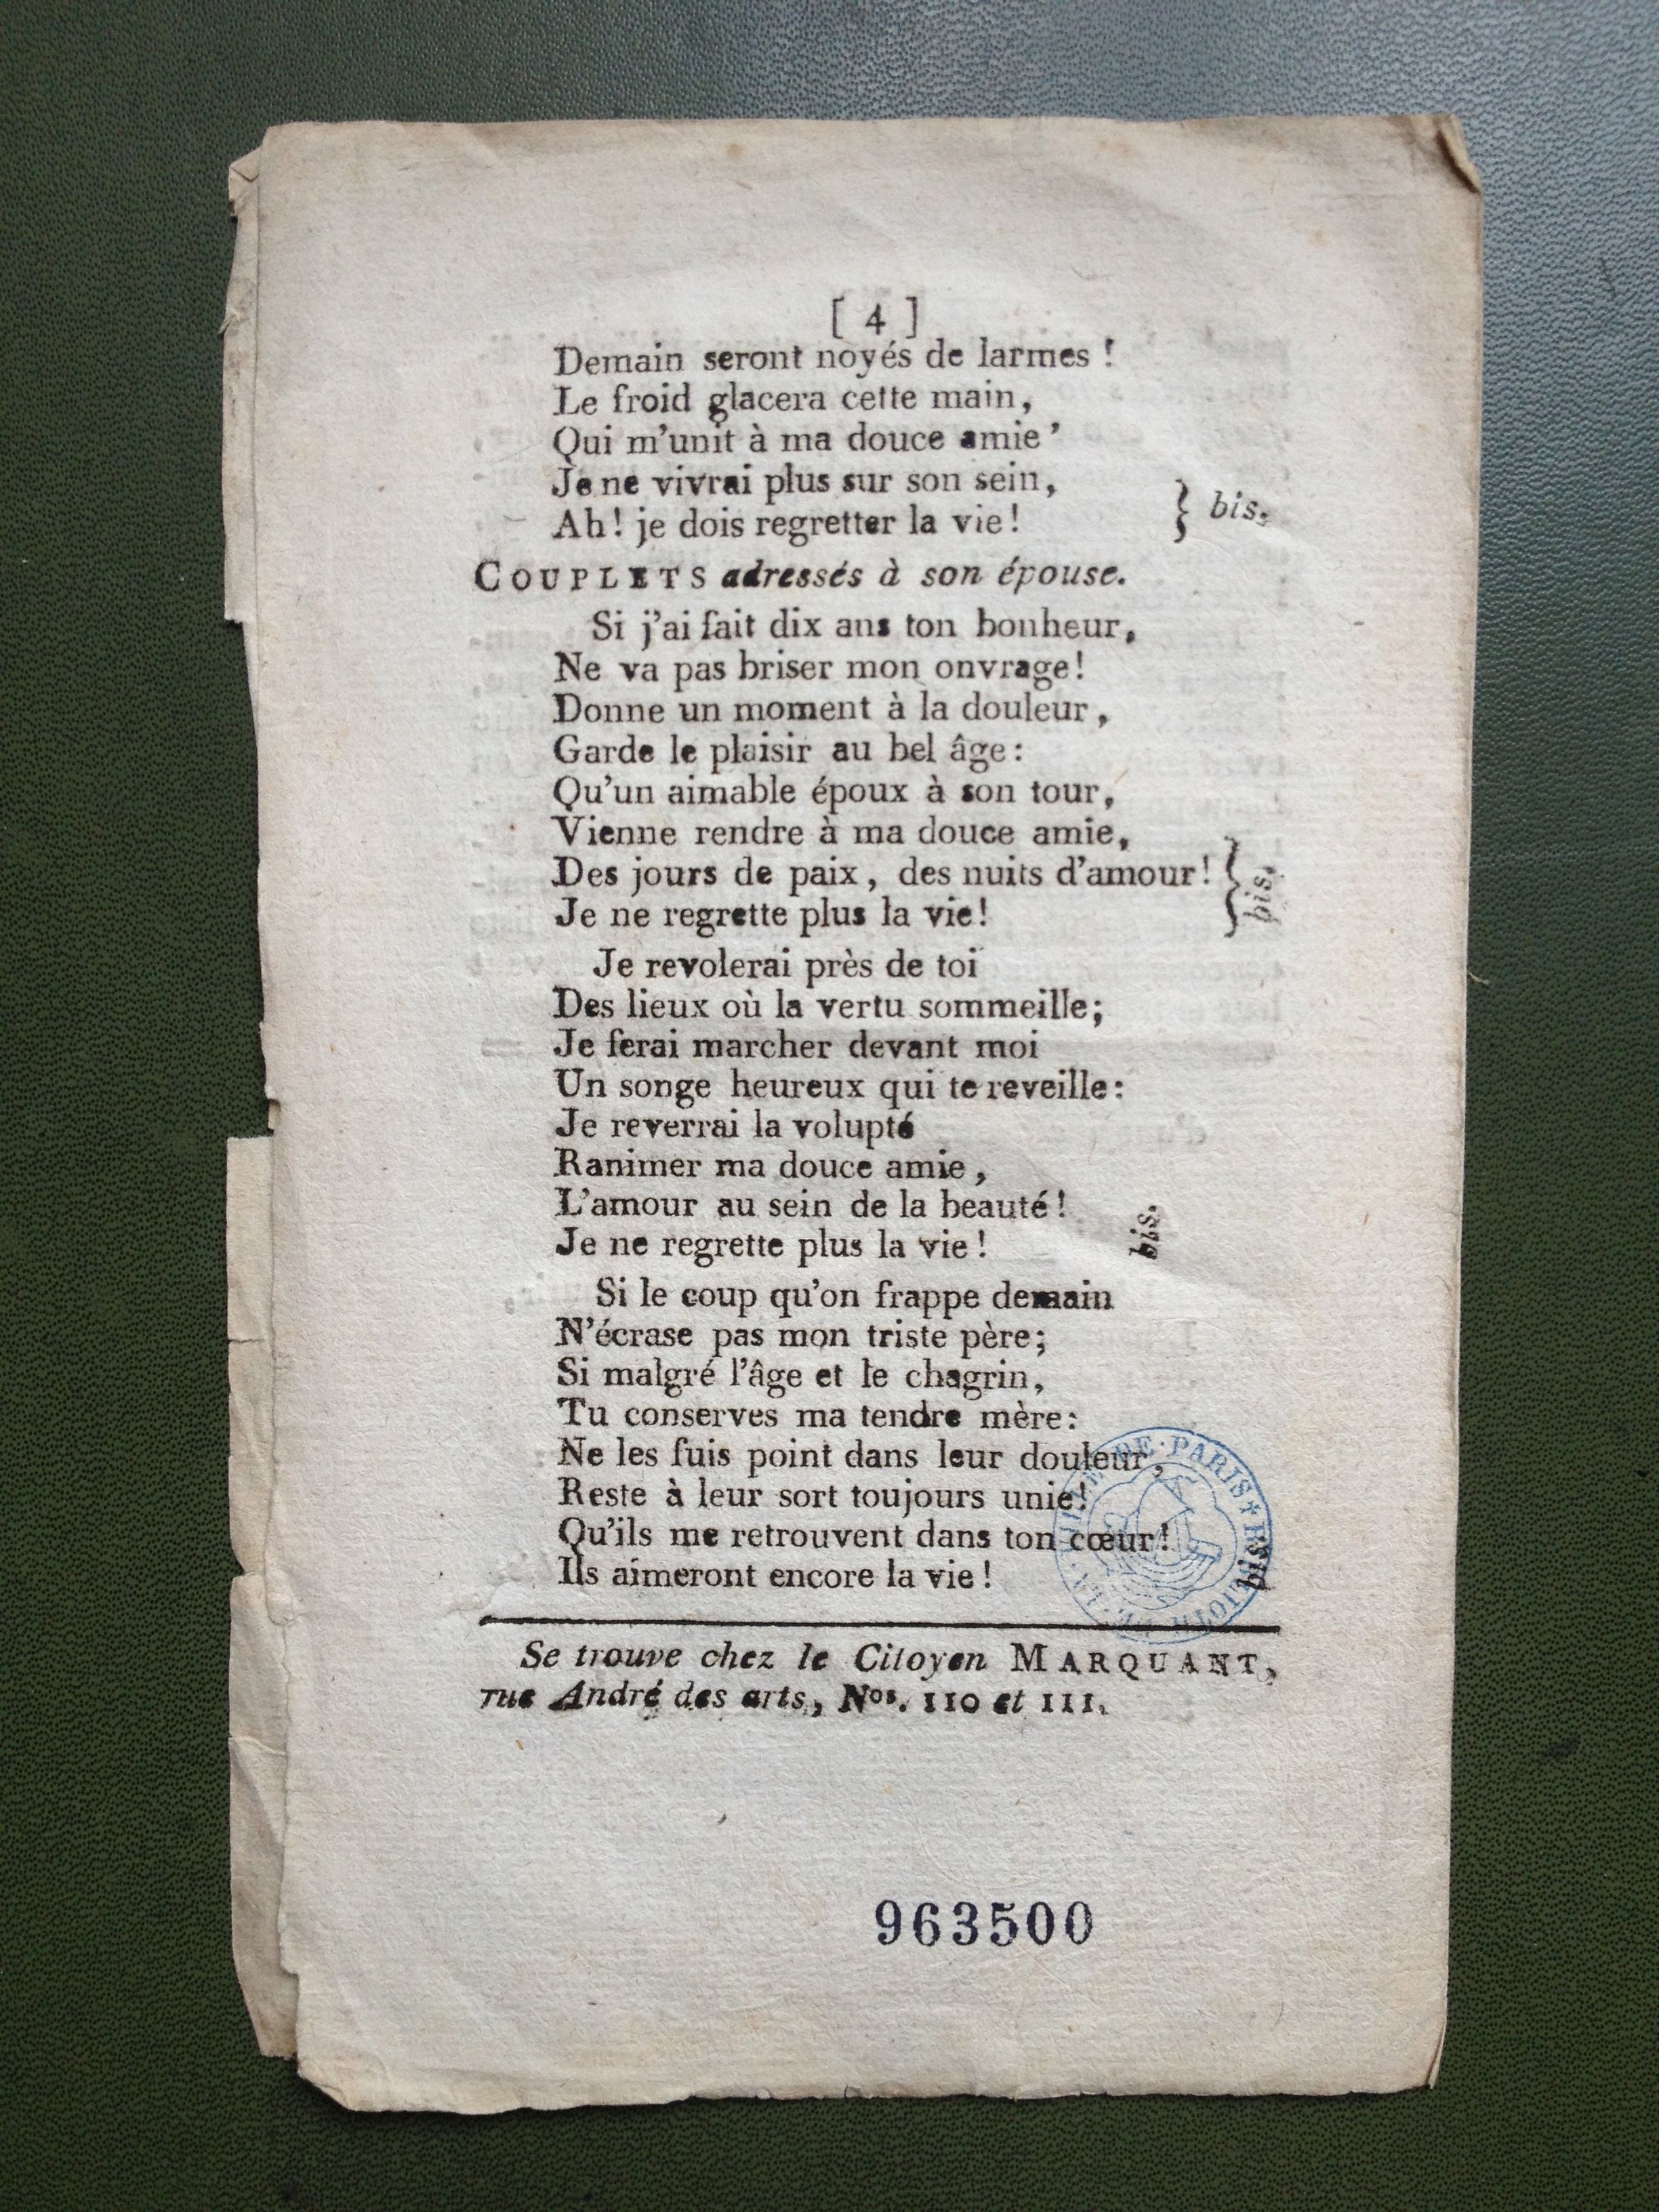 [ 4 ]
Demain seront noyés de larmes !
Le froid glacera cette main,
Qui m'unit à ma douce amie ’
Je ne vivrai plus sur son sein,
Ah! je dois regretter la vie! } bis.
COUPLETS adressés à son épouse.
Si j'ai fait dix ans ton bonheur,
Ne va pas briser mon onvrage!
Donne un moment à la douleur,
Garde le plaisir au bel âge:
Qu'un aimable époux à son tour,
Vienne rendre à ma douce amie,
Des jours de paix, des nuits d'amour!
Je ne regrette plus la vie! } bis.
Je revolerai près de toi
Des lieux où la vertu sommeille;
Je ferai marcher devant moi
Un songe heureux qui te reveille:
Je reverrai la volupté
Ranimer ma douce amie,
L'amour au sein de la beauté!
Je ne regrette plus la vie! bis.
Si le coup qu'on frappe demain
N'écrase pas mon triste père;
Si malgré l'âge et le chagrin,
Tu conserves ma tendre mère:
Ne les fuis point dans leur douleur,
Reste à leur sort toujours unie!
Qu'ils me retrouvent dans ton cœur!
Ils aimeront encore la vie! bis
DE PARIS
Se trouve chez le Citoyen MARQUANT,
rue André des arts, Nos. 110 et 111.
963500